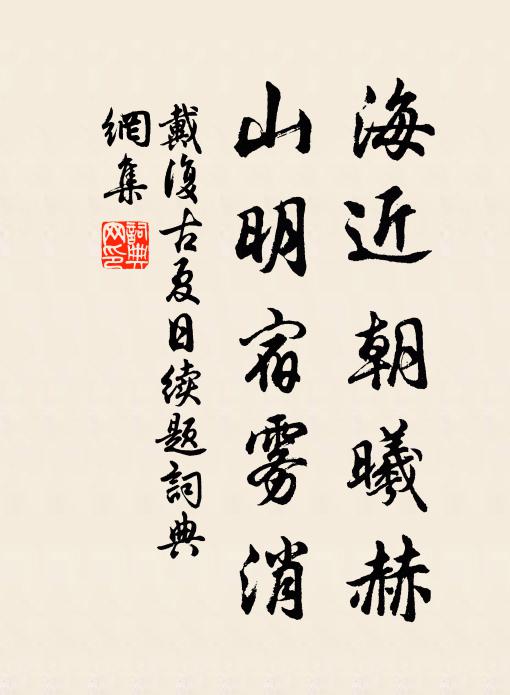 海近朝曦赫
山明宿雾消
戴復古夏日续题詞典
網集
詞典网印